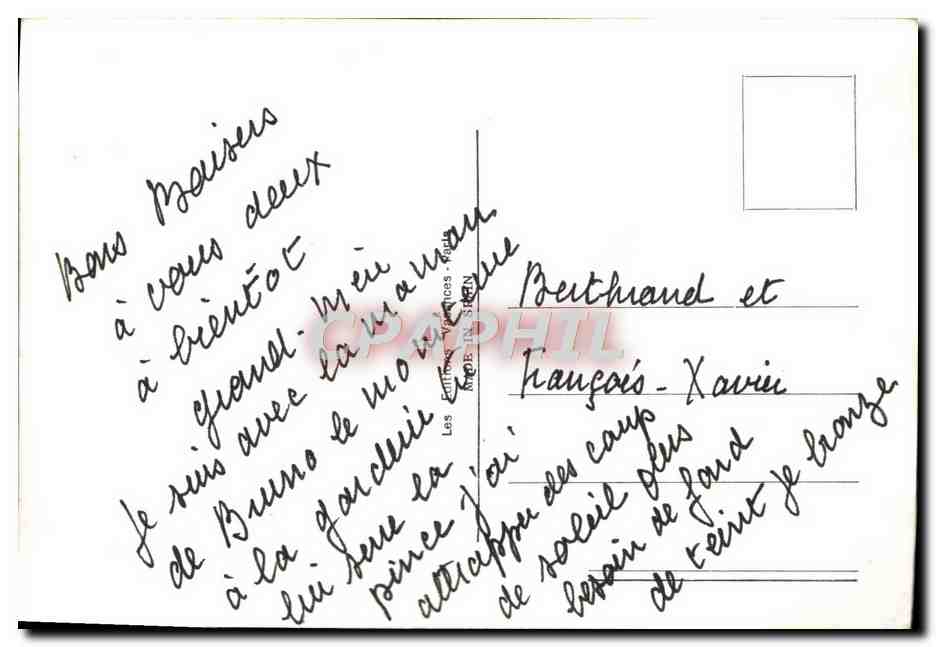 Bons Baisers
à vous deux
à bientôt
grand-mère
Je suis avec la maman
de Bruno le
à la garderie
lui serre la
pince j'ai
attrapper des coups
de soleil plus
besoin de fond
de teint je bronze
Bertrand et
François-Xavier
Les Editions Vacances - Paris
MADE IN SPAIN
CPAPHIL